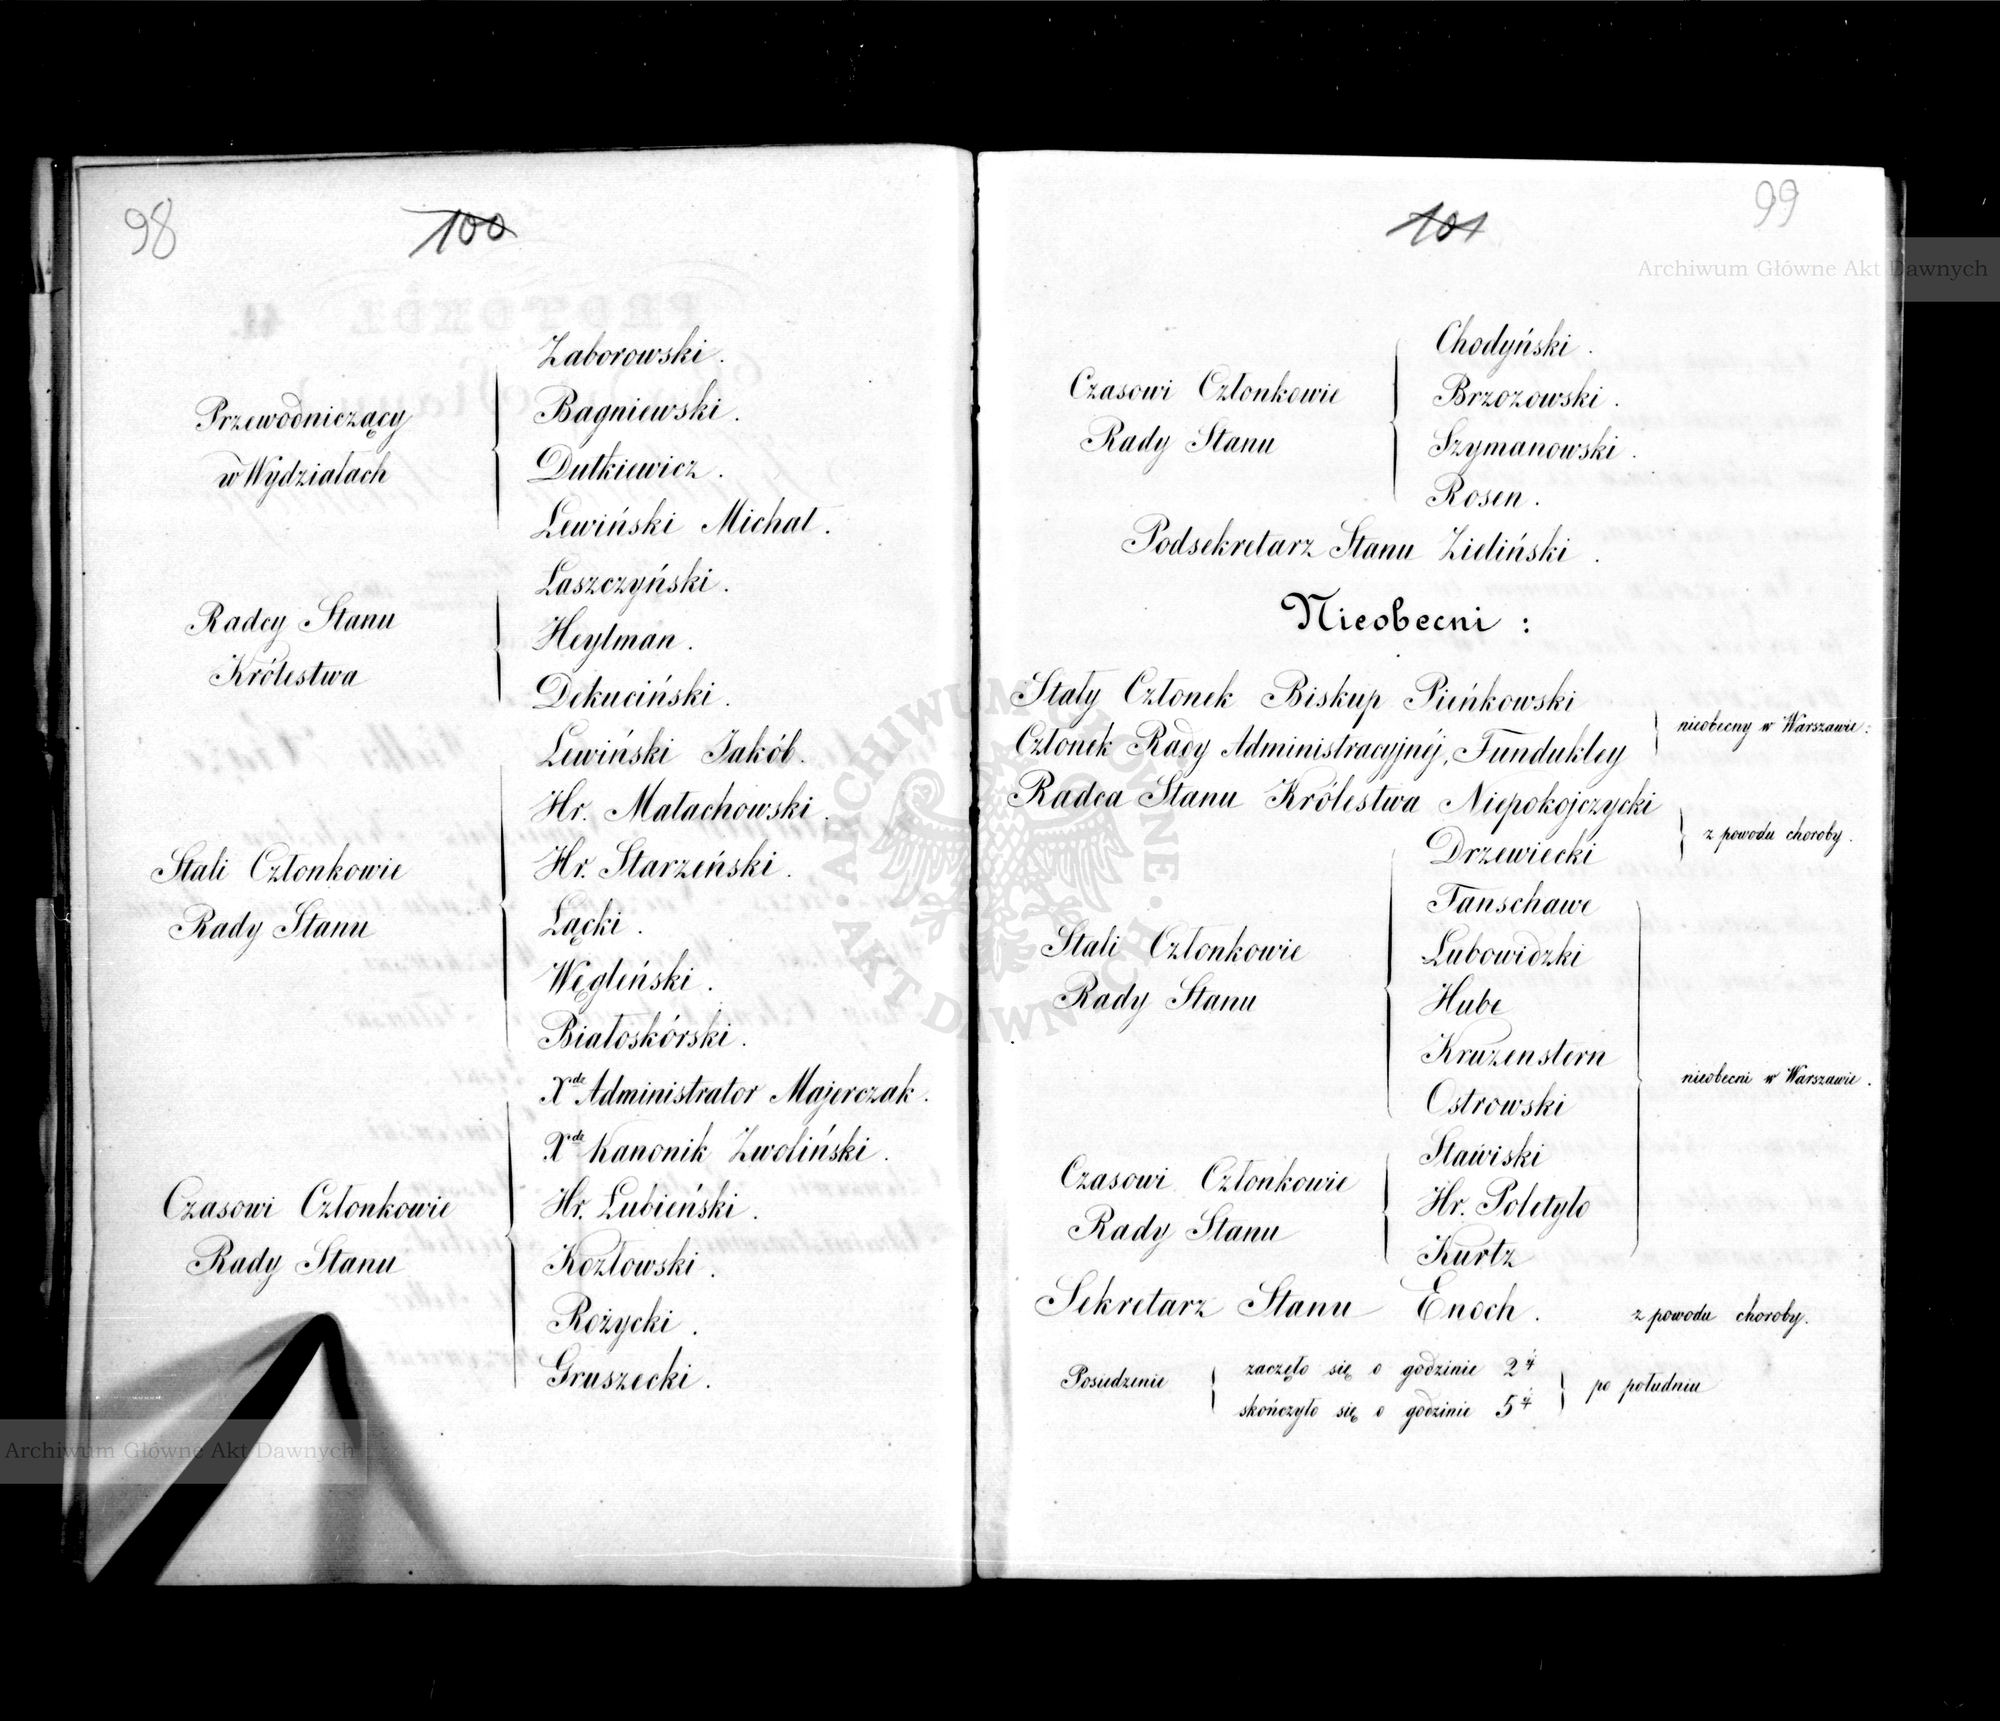 98
100
Przewodniczący
w Wydziałach
Zaborowski.
Bagniewski.
Dutkiewicz.
Lewiński Michał.
Radcy Stanu
Królestwa
Łaszczyński.
Heylman.
Dekuciński.
Stali Członkowie
Rady Stanu
Lewiński Jakób.
Hr. Małachowski.
Hr. Starzeński.
Łącki.
Węgleński.
Białoskórski.
Xdz Administrator Majerczak.
Czasowi Członkowie
Rady Stanu
Xdz Kanonik Zwoliński.
Hr. Łubieński.
Kozłowski.
Rożycki.
Gruszecki.
101
99
Czasowi Członkowie
Rady Stanu
Chodyński.
Brzozowski.
Szymanowski.
Rosen.
Podsekretarz Stanu Zieliński.
Nieobecni:
Stały Członek Biskup Pieńkowski
Członek Rady Administracyjnéj, Fundukley
nieobecny w Warszawie:
Radca Stanu Królestwa Niepokojczycki
Drzewiecki
z powodu choroby.
Stali Członkowie
Rady Stanu
Fanschawe
Lubowidzki
Hube
Kruzenstern
Ostrowski
nieobecni w Warszawie.
Czasowi Członkowie
Rady Stanu
Stawiski
Hr. Poletyło
Kurtz
Sekretarz Stanu Enoch. z powodu choroby.
Posiedzenie
zaczęło się o godzinie 2 1/4
skończyło się o godzinie 5 1/4
po południu
Archiwum Główne Akt Dawnych
Archiwum Główne Akt Dawnych
ARCHIWUM GŁÓWNE
AKT DAWNYCH